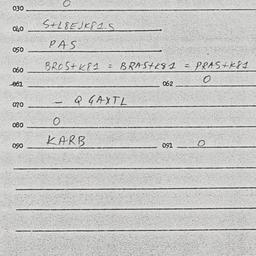 030 0
040 S+L8EJK81.S
050 PAS
060 BROS+K81 = BRAS+K81 = PRAS+K81
061 062 0
070 - Q GAXTL
080 0
090 KARB 091 0